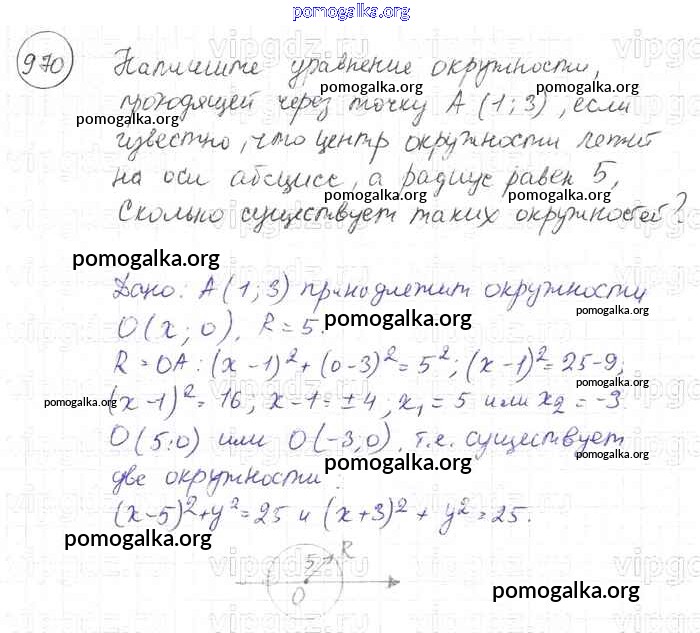 pomogalka.org
970 Напишите уравнение окружности,
проходящей через точку А (1;3), если
pomogalka.org pomogalka.org
известно, что центр окружности лежит
pomogalka.org
на оси абсцисс, а радиус равен 5,
pomogalka.org
Сколько существует таких окружностей?
pomogalka.org pomogalka.org
Дано: А (1;3) принадлежит окружности
O(x; 0), R = 5.
pomogalka.org pomogalka.org
R = OA: (x - 1)² + (0 - 3)² = 5²; (x - 1)² = 25 - 9;
pomogalka.org
(x - 1)² = 16; x - 1 = ± 4; x₁ = 5 или x₂ = -3.
pomogalka.org pomogalka.org
O(5;0) или O(-3;0), т.е. существует
pomogalka.org pomogalka.org
две окружности:
(x-5)² + y² = 25 и (x+3)² + y² = 25.
pomogalka.org pomogalka.org
5 R
O
pomogalka.org